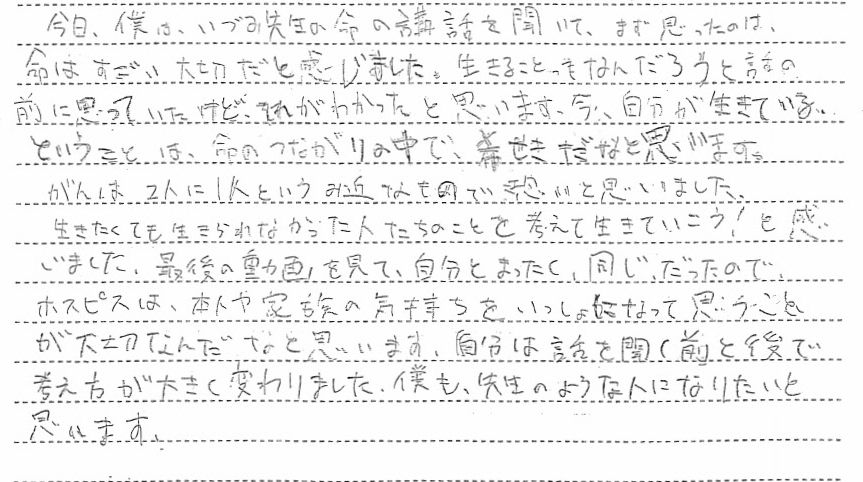 今日、僕は、いづみ先生の命の講話を聞いて、まず思ったのは、
命はすごい大切だと感じました。生きることってなんだろうと話の
前に思っていたけど、それがわかったと思います。今、自分が生きている
ということは、命のつながりの中で、奇せきだなと思います。
がんは2人に1人という身近なもので恐いと思いました。
生きたくても生きられなかった人たちのことを考えて生きていこう!と感
じました。最後の動画を見て、自分とまったく同じだったので、
ホスピスは、本人や家族の気持ちをいっしょになって思うこと
が大切なんだなと思います。自分は話を聞く前と後で
考え方が大きく変わりました。僕も、先生のような人になりたいと
思います。